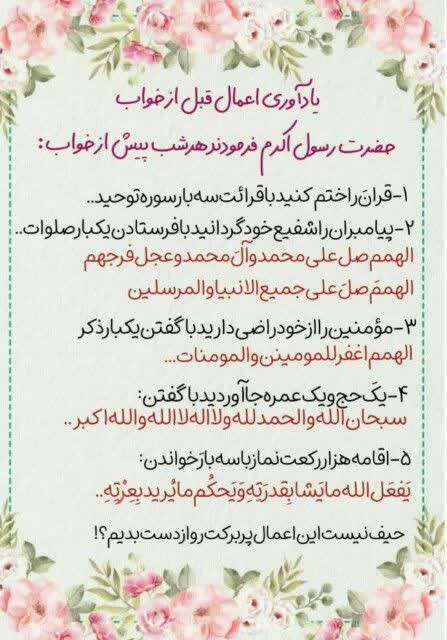 یادآوری اعمال قبل از خواب
حضرت رسول اکرم فرمودند هر شب پیش از خواب :
۱-قرآن را ختم کنید با قرائت سه بار سوره توحید..
۲-پیامبران را شفیع خود گردانید با فرستادن یکبار صلوات..
الهمم صل علی محمد و آل محمد و عجل فرجهم
الهمَ صلَ علی جمیع الانبیا و المرسلین
۳-مؤمنین را از خود راضی دارید با گفتن یکبار ذکر
الهمم اغفر للمومینن و المومنات...
۴-یک حج و یک عمره جا آوردید با گفتن:
سبحان الله و الحمد لله و لا اله لا الله و الله اکبر ..
۵-اقامه هزار رکعت نماز با سه بار خواندن:
یَفعَل الله ما یَشا بِقدرَتِهِ وَ یَحکُم ما یُرید بِعِزَتِهِ..
حیف نیست این اعمال پر برکت رو از دست بدیم؟!